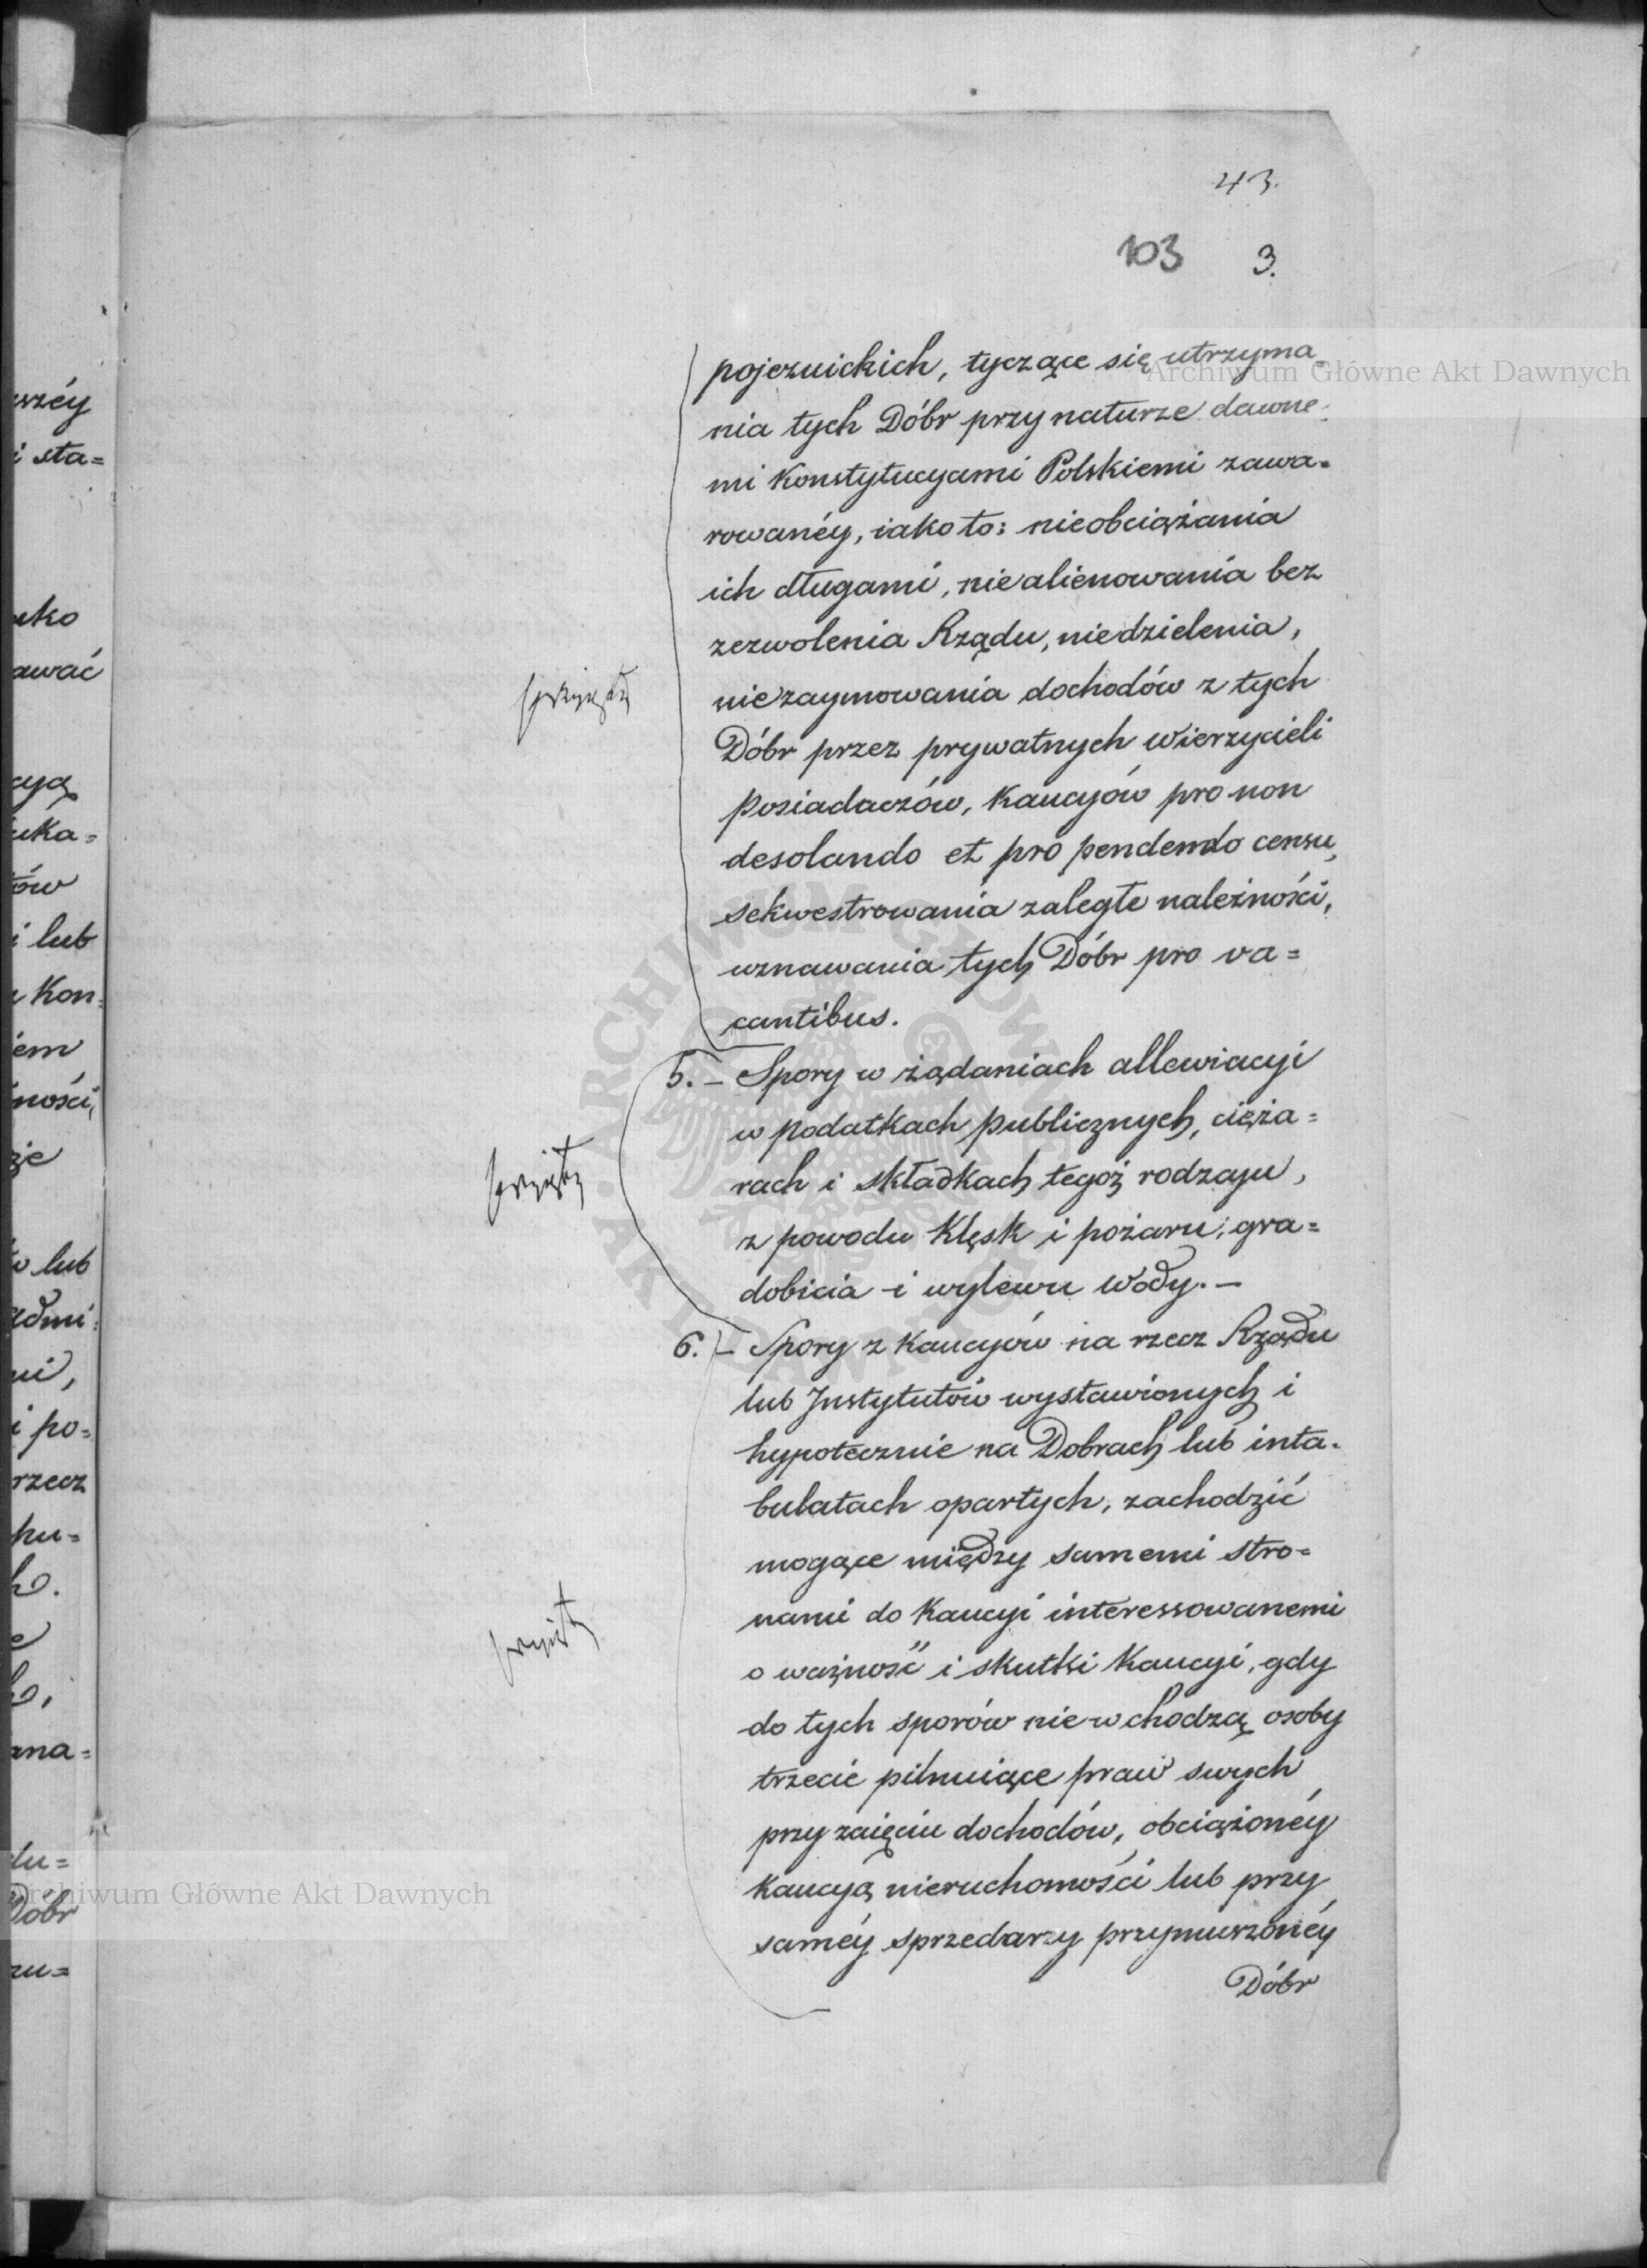 43.
103 3.
pojezuickich, tyczące się utrzyma=
nia tych Dóbr przy naturze dawne=
mi Konstytucyami Polskiemi zawa=
rowanéy, iako to: nieobciążania
ich długami, niealienowania bez
zezwolenia Rządu, niedzielenia,
niezaymowania dochodów z tych
Dóbr przez prywatnych Wierzycieli
Posiadaczów, Kaucyów pro non
desolando et pro pendendo censu,
sekwestrowania zaległe należności,
uznawania tych Dóbr pro va=
cantibus.
5. – Spory w żądaniach allewiacyi
w podatkach publicznych, cięża=
rach i składkach tegoż rodzaju,
z powodu Klęsk i pożaru, gra=
dobicia i wylewu Wody. –
6. – Spory z Kaucyów na rzecz Rządu
lub Instytutów wystawionych i
hypotecznie na Dobrach lub inta=
bulatach opartych, zachodzić
mogące między samemi stro=
nami do Kaucyi interessowanemi
o ważność i skutki Kaucyi, gdy
do tych sporów niewchodzą osoby
trzecie pilnuiące praw swych
przy zaięciu dochodów, obciążonéy
Kaucyą nieruchomości lub przy
saméy sprzedarzy przymuszonéy
Dóbr
przyięty
przyięty
przyięty
wzéy
i sta=
uko
awać
cyą
uka=
ów
i lub
Kon=
em
ności,
że
lub
admi=
ni,
i po=
rzecz
hu=
ana=
du=
Dobr
zu=
Archiwum Główne Akt Dawnych
Archiwum Główne Akt Dawnych
ARCHIWUM GŁÓWNE AKT DAWNYCH